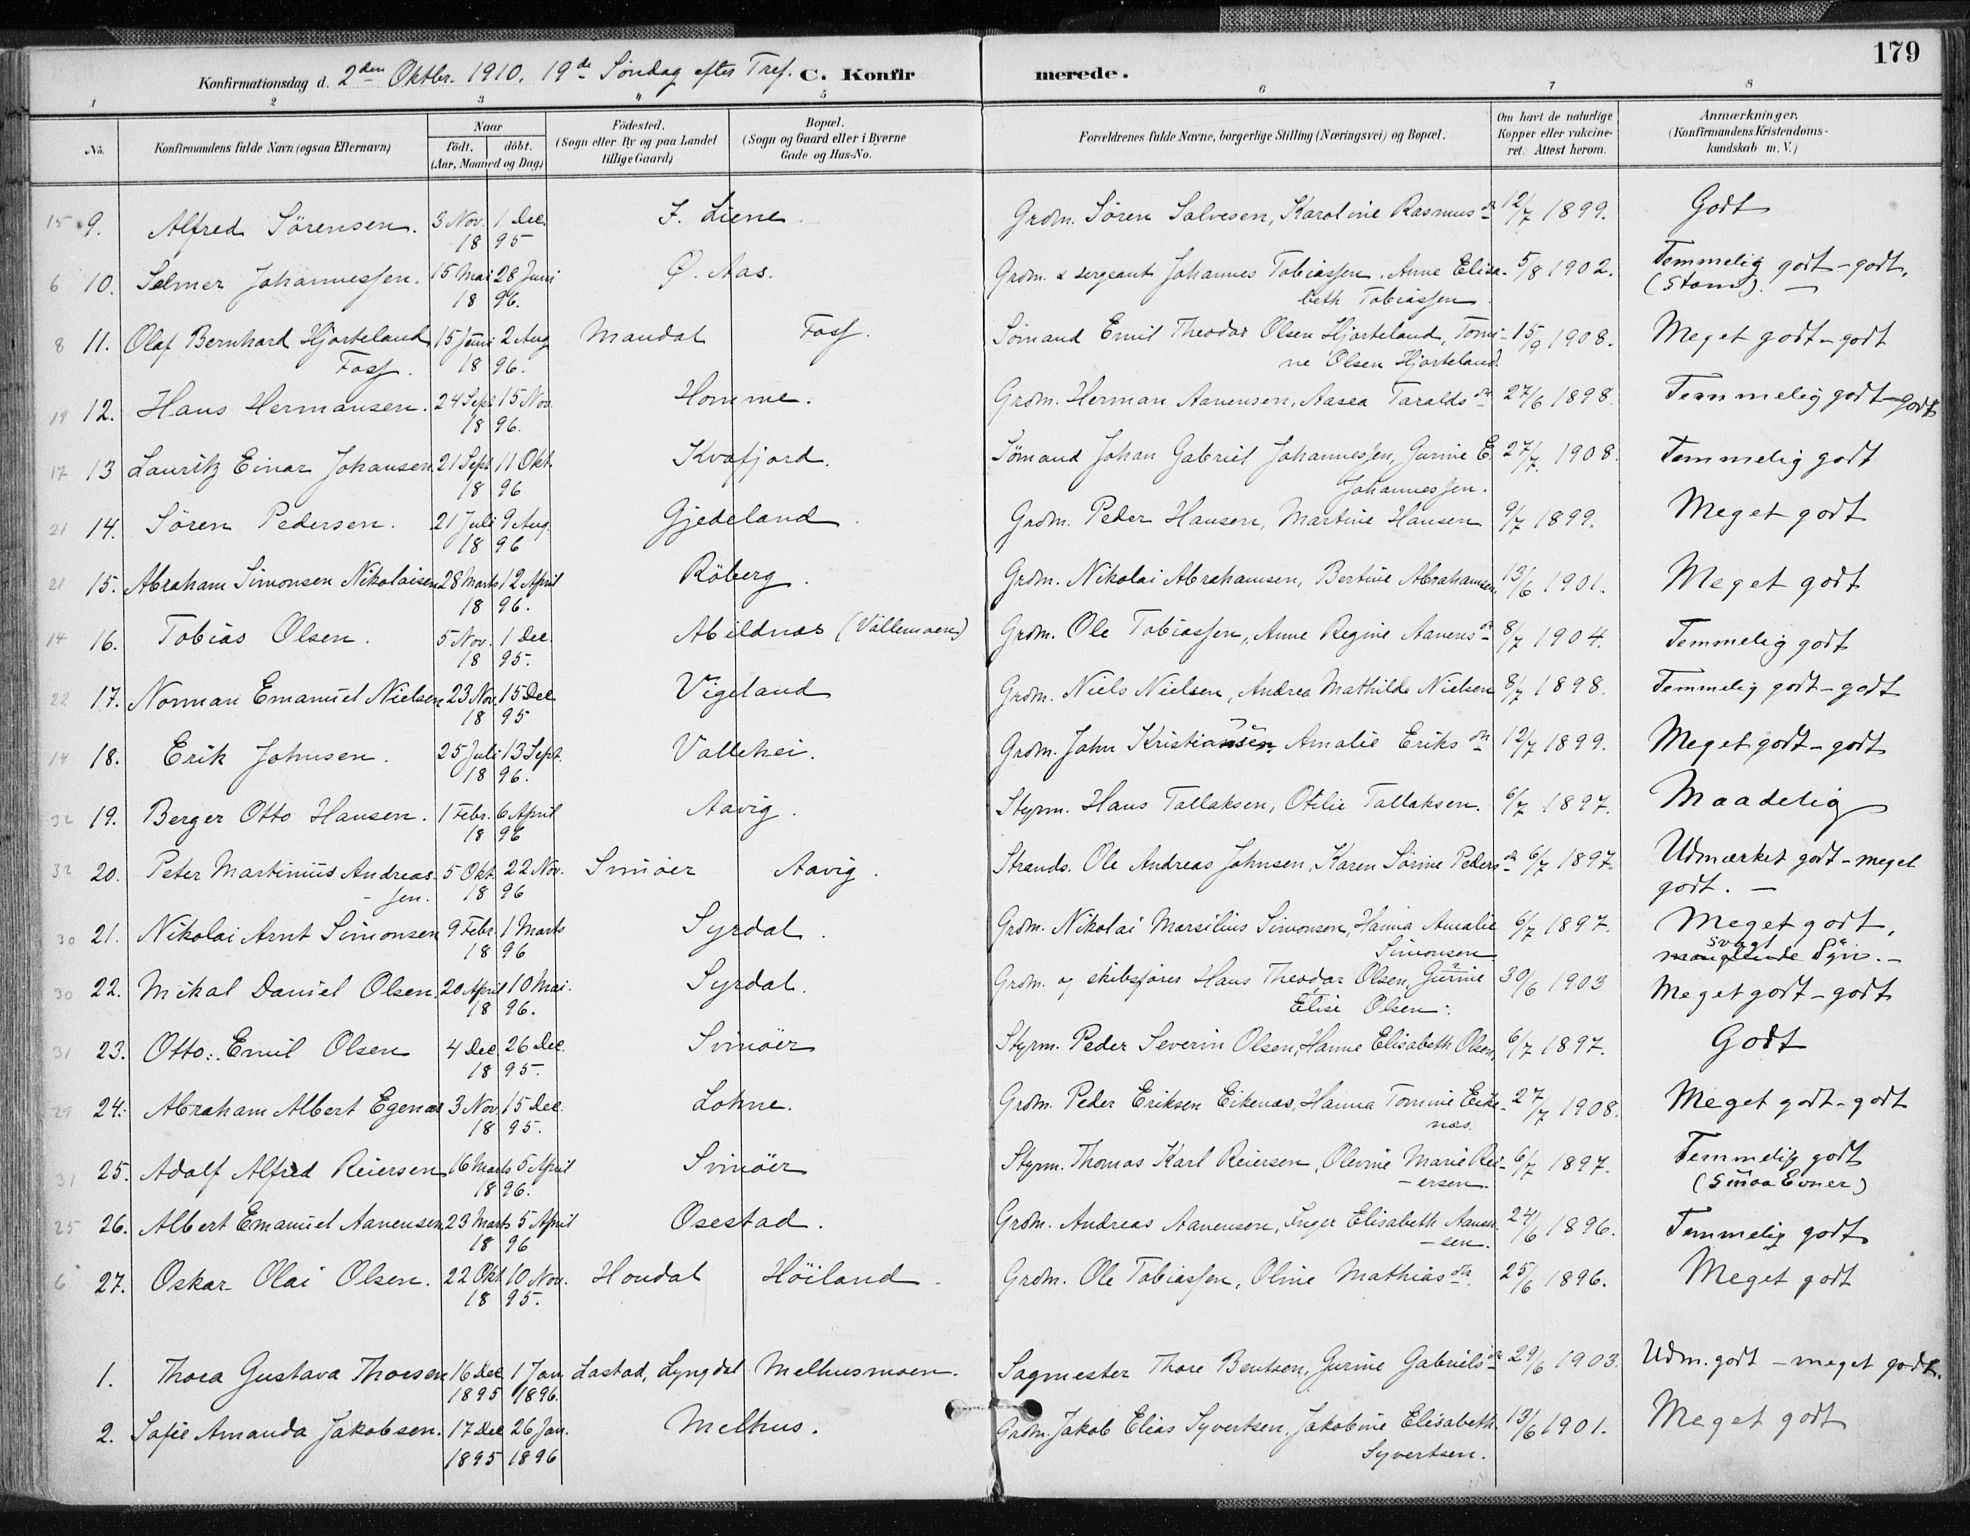 179
Konfirmationsdag d. 2den Oktbr. 1910. 19de Søndag efter Tref. C. Konfirmerede.
1 2 3 4 5 6 7 8
No. Konfirmandens fulde Navn (ogsaa Efternavn) Naar födt. döbt. (Aar, Maaned og Dag) Födested. (Sogn eller By og paa Landet tillige Gaard) Bopæl. (Sogn og Gaard eller i Byerne Gade og Hus-No. Forældrenes fulde Navne, borgerlige Stilling (Næringsvei) og Bopæl. Om havt de naturlige Kopper eller vakcineret. Attest herom. Anmærkninger. (Konfirmandens Kristendomskundskab m. V.)
15 9. Alfred Sörensen. 3 Nov. 1 Dec. 18 95 Y. Liene. Grdm. Sören Salvesen, Karoline Rasmusdr 12/7 1899. Godt
6 10. Selmer Johannessen. 15 Mai 28 Juni 18 96. Ø. Aas. Grdm. & sergeant Johannes Tobiassen, Anne Elisa-
beth Tobiassen. 5/8 1902. Temmelig godt - godt.
(Stam). —
8 11. Olaf Bernhard Hjorteland 15 Juni 2 Aug 18 96. Mandal Foss. Sömand Emil Theodor Olsen Hjorteland, Tomi-
Foss. ne Olsen Hjorteland. 15/9 1908. Meget godt - godt
19 12. Hans Hermansen. 24 Sept 15 Nov. 18 96. Homme. Grdm. Herman Aanensen, Aasea Taraldsdr 27/6 1898. Temmelig godt - godt
17 13 Lauritz Einar Johansen 21 Sept. 11 Okt. 18 96 Kvafjord. Sömand Johan Gabriel Johannessen, Gurine E.
Johannessen. 27/7. 1908. Temmelig godt
21 14. Sören Pedersen. 21 Juli 9 Aug. 18 96 Gjedeland. Grdm. Peder Hansen, Martine Hansen 9/7 1899. Meget godt
21 15. Abraham Simonsen Nikolaisen 28 Marts 12 April 18 96. Röberg. Grdm. Nikolai Abrahamsen, Bertine Abrahamsen, 13/6 1901. Meget godt
14 16. Tobias Olsen. 5 Nov. 1 Dec. 18 95. Abildnæs (Vallemoen) Grdm. Ole Tobiassen, Anne Regine Aanensdr 8/7 1904. Temmelig godt
22 17. Norman Emanuel Nielsen 23 Nov. 15 Dec 18 95 Vigeland Grdm. Niels Nielsen, Andrea Mathilde Nielsen 8/7 1898. Temmelig godt - godt
14 18. Erik Johnsen. 25 Juli 13 Sept. 18 96. Vallehei. Grdm. John Kristiansen, Amalie Eriksdr 12/7 1899. Meget godt - godt
32 19. Berger Otto Hansen. 1 Febr. 6 April 18 96 Aavig. Styrm. Hans Tallaksen, Otilie Tallaksen. 6/7 1897. Maadelig
32 20. Peter Martinius Andreas-
sen. 5 Okt. 22 Nov. 18 96 Svinöer Aavig. Strands. Ole Andreas Johnsen, Karen Sörine Pedersdr 6/7 1897. Udmærket godt - meget
godt. —
30 21. Nikolai Arnt Simonsen 9 Febr. 1 Marts 18 96 Syrdal. Grdm. Nikolai Marsilius Simonsen, Hanna Amalie
Simonsen 6/7 1897. Meget godt,
svagt
manglende Syn. —
30 22. Mikal Daniel Olsen. 20 April 10 Mai. 18 96. Syrdal. Grdm. og skibsförer Hans Theodor Olsen, Gurine
Elise Olsen. 30/6 1903 Meget godt - godt
31 23. Otto Emil Olsen 4 Dec. 26 Dec. 18 95. Svinöer Styrm. Peder Severin Olsen, Hanne Elisabeth Olsen, 6/7 1897. Godt
29 24. Abraham Albert Egenæs 3 Nov. 15 Dec. 18 95. Lohne. Grdm. Peder Eriksen Eikenæs, Hanna Tomine Eike-
næs. 27/7 1908. Meget godt - godt
31 25. Adolf Alfred Reiersen 16 Marts 5 April 18 96. Svinöer Styrm. Thomas Karl Reiersen, Olevine Marie Rei-
ersen. 6/7 1897. Temmelig godt
(Smaa Evner)
25 26. Albert Emanuel Aanensen 23 Marts 5 April 18 96 Osestad. Grdm. Andreas Aanensen, Inger Elisabeth Aanen-
sen. 24/6 1896. Temmelig godt
6 27. Oskar Olai Olsen. 22 Okt. 10 Nov. 18 95. Houdal Höiland. Grdm. Ole Tobiassen, Oline Mathiasdr 25/6 1896. Meget godt
1. Thora Gustava Thorsen 16 Dec 1 Jan 1895 1896. Lastad, Lyngdal Melhusmoen. Sagmester Thore Bentsen, Gurine Gabrielsdr 29/6 1903. Udm. godt - meget godt.
2. Sofie Amanda Jakobsen. 17 Dec 26 Jan. 1895 1896 Melhus. Grdm. Jakob Elias Syvertsen, Jakobine Elisabeth
Syvertsen. 13/6 1901. Meget godt